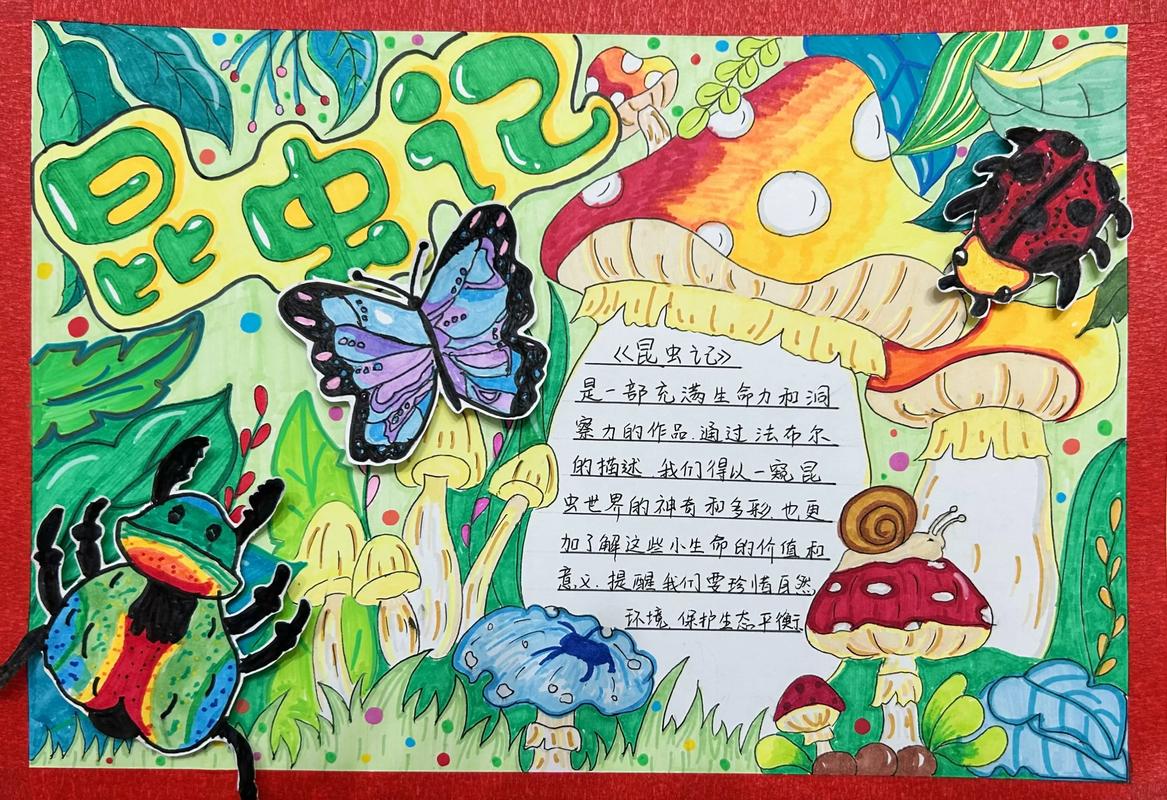 昆虫记
《昆虫记》
是一部充满生命力和洞
察力的作品.通过法布尔
的描述.我们得以一窥昆
虫世界的神奇和多彩.也更
加了解这些小生命的价值和
意义.提醒我们要珍惜自然
环境.保护生态平衡